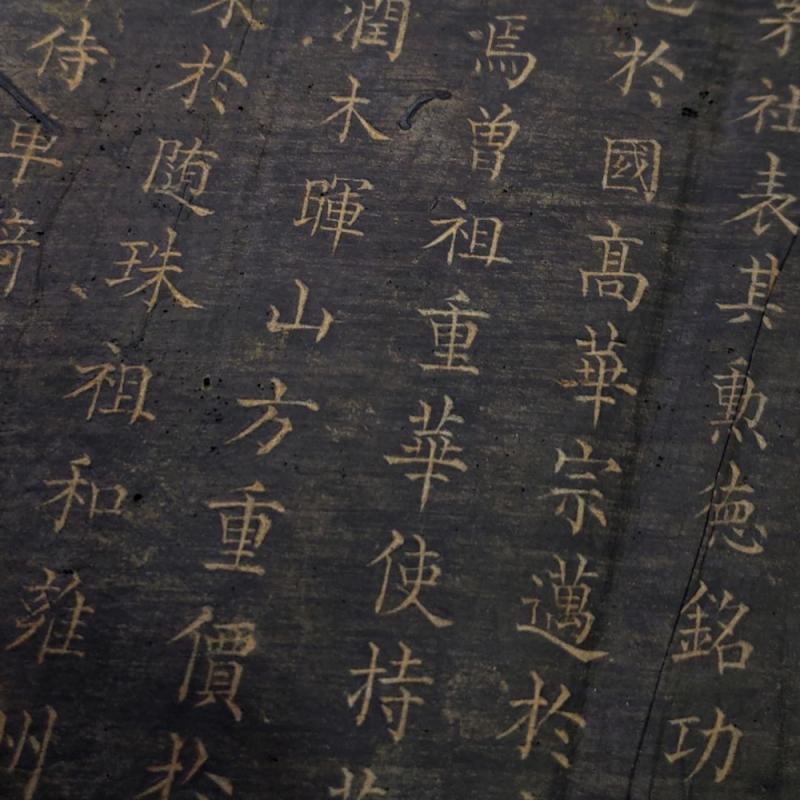 社表其勲徳銘功
於國髙華宗邁於
焉曽祖重華使持
潤木暉山方重價於
於随珠祖和雍州
侍車